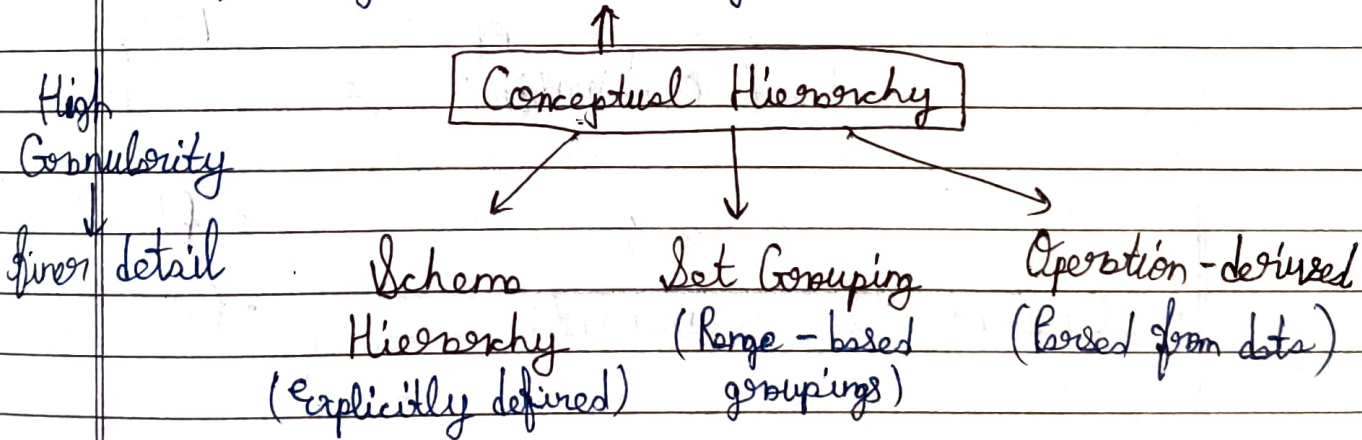 Conceptual Hierarchy
High
Granularity
finer detail
Schema
Hierarchy
(explicitly defined)
Set Grouping
(Range-based
groupings)
Operation-derived
(Parsed from data)